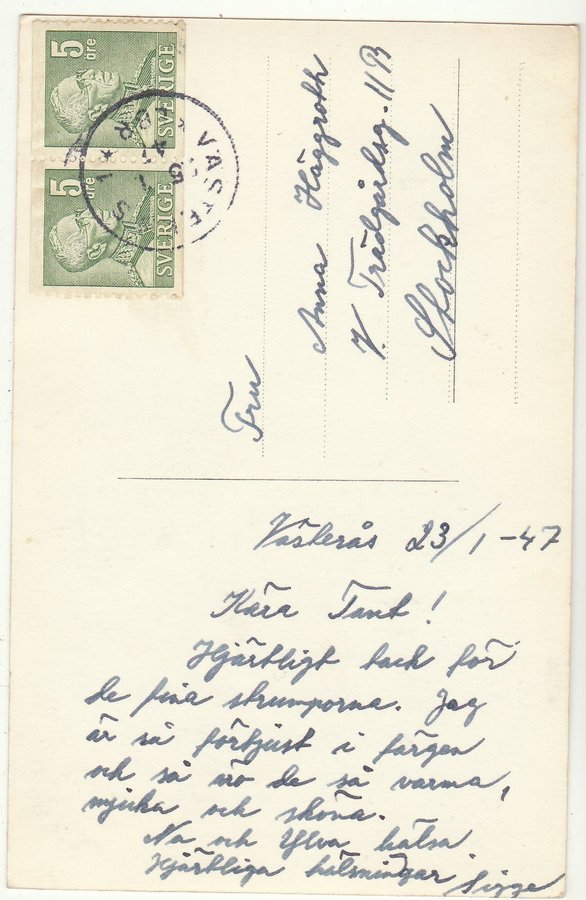 5 öre
SVERIGE
5 öre
SVERIGE
VÄSTERÅS 1
LBR
Fru
Anna Häggroth
V. Trädgårdsg. 11 B
Stockholm
Västerås 23/1 -47
Kära Tant!
Hjärtligt tack för
de fina strumporna. Jag
är så förtjust i färgen
och så äro de så varma,
mjuka och sköna.
Na och Ylva hälsa
Hjärtliga hälsningar Sigge